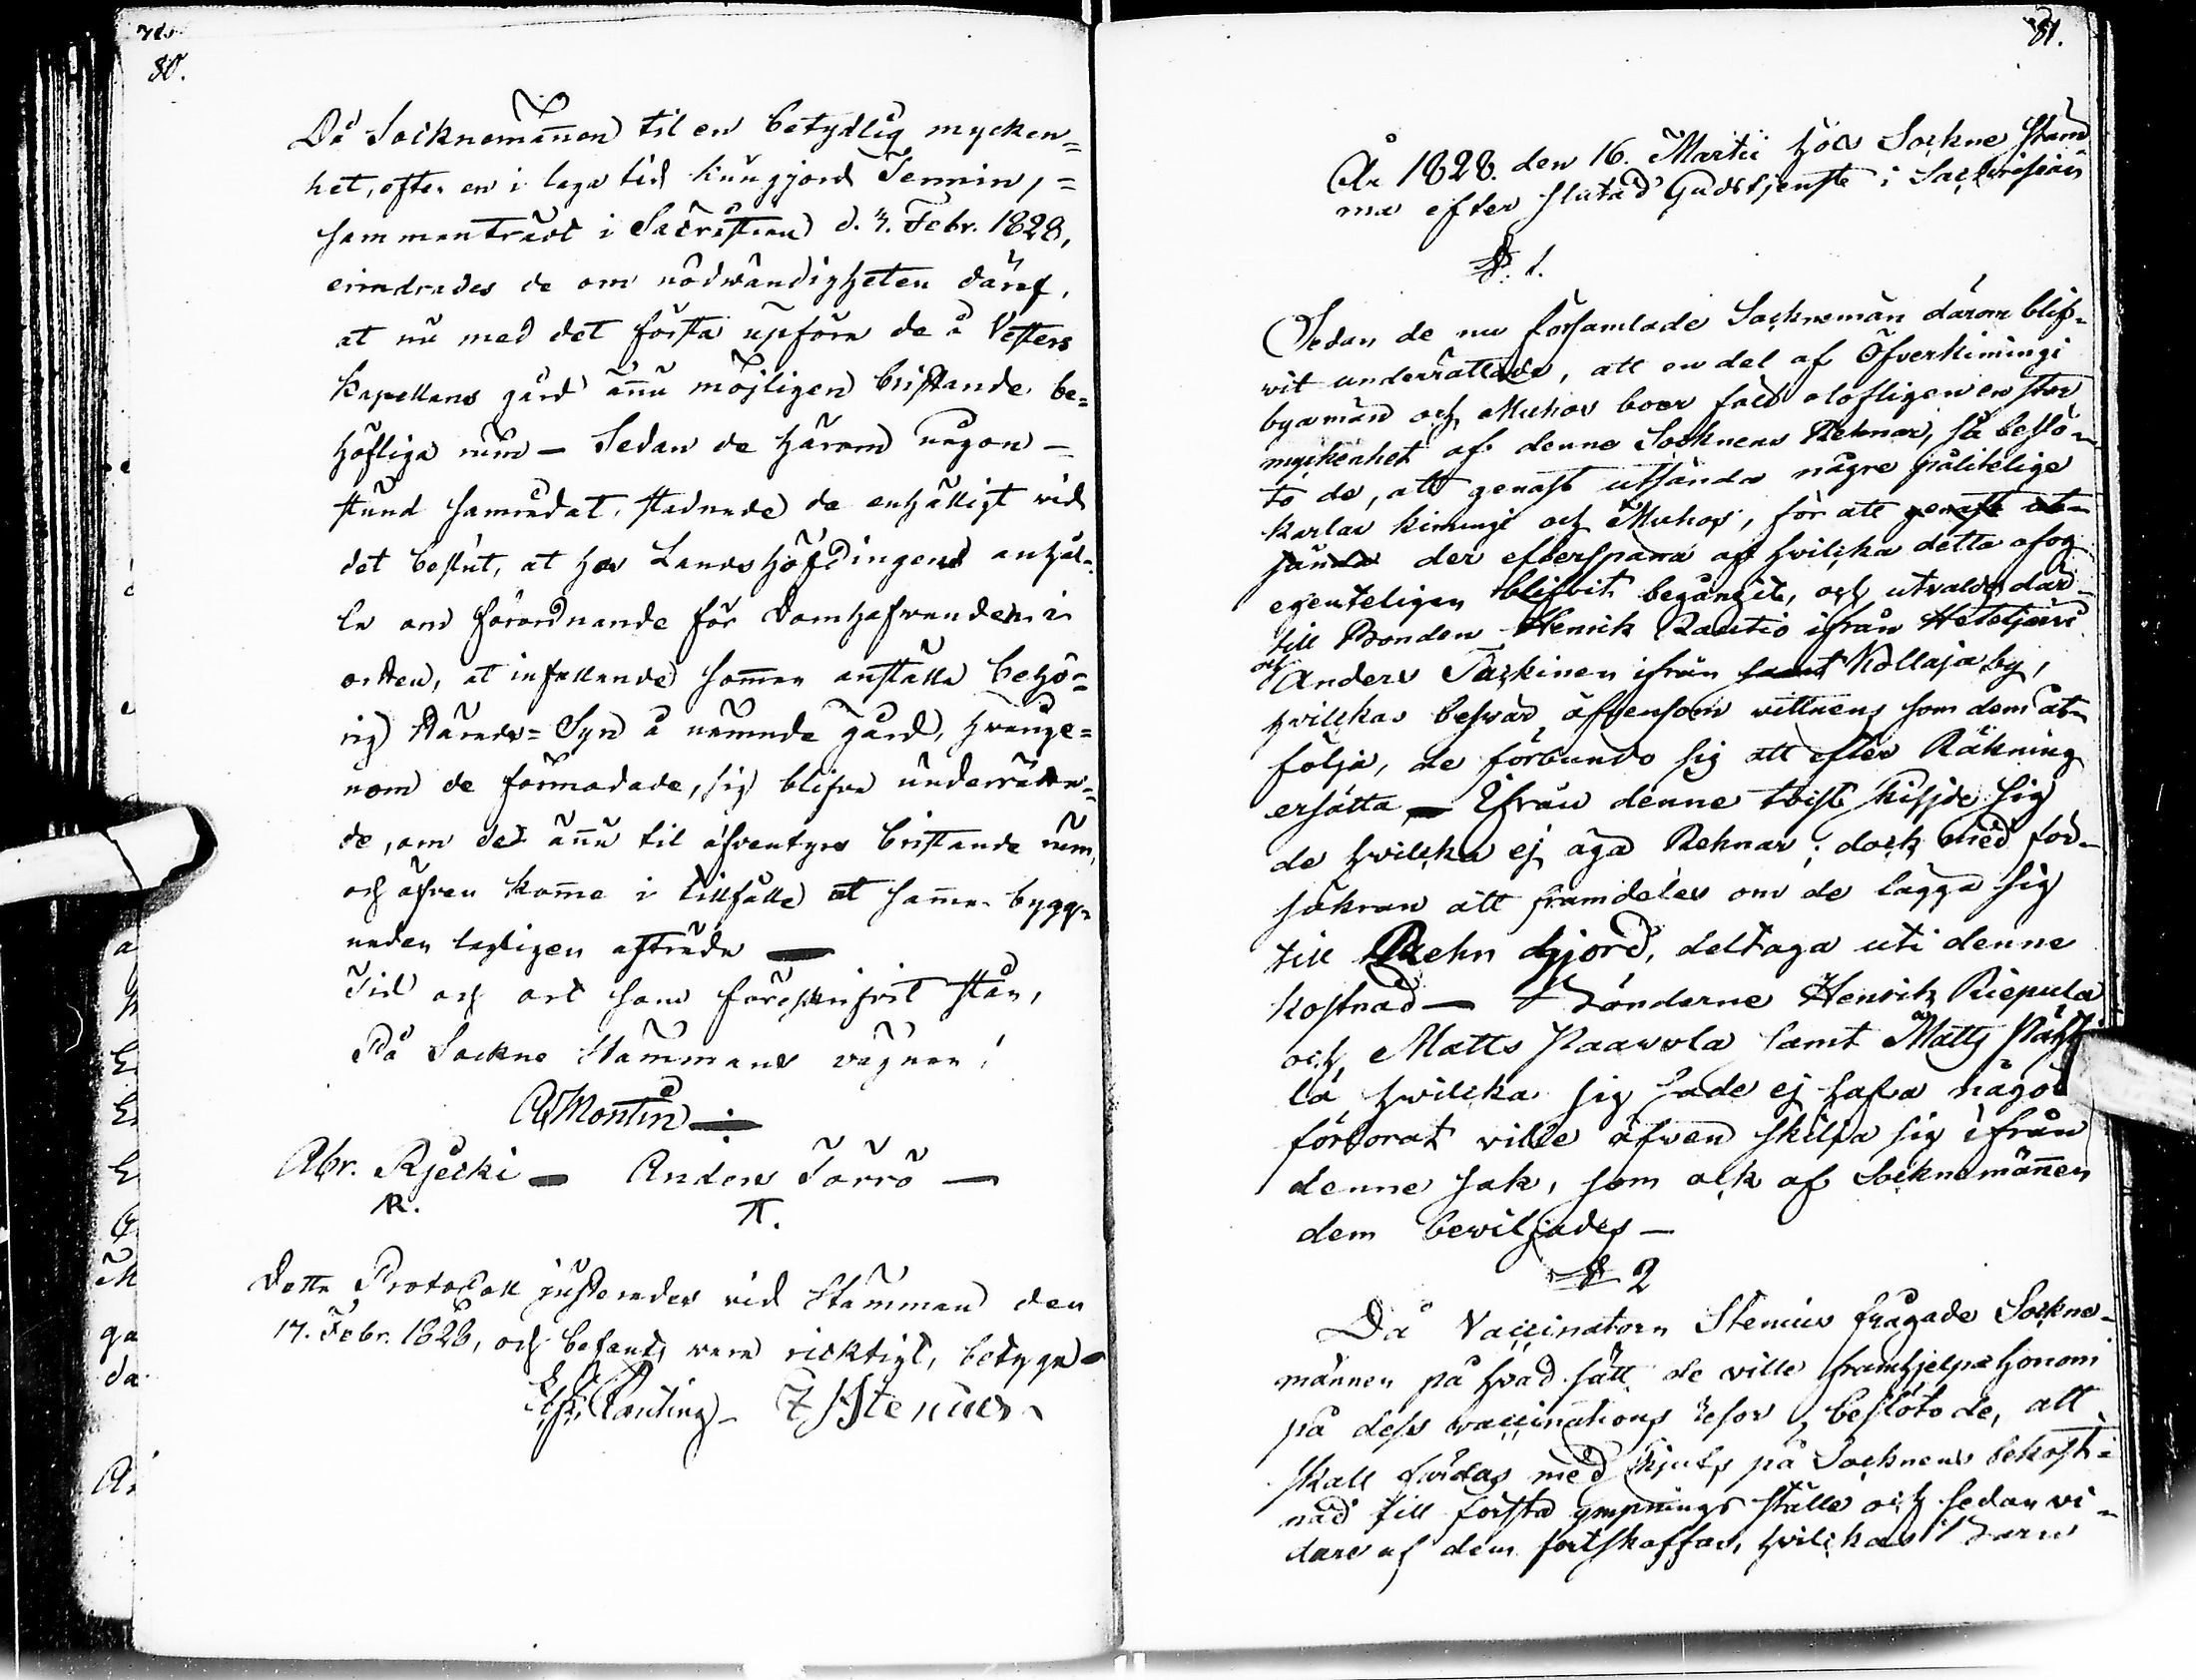 80.
Då Socknemännen til en betydlig mycken=
het, efter en i laga tid kungjord Termin,=
sammanträdt i Sacristian d. 3. Febr. 1828,
erindrades de om nödwändigheten däraf,
at nu med det första upföra de å
Kapellans gård ännu möjligen bristande be=
höfliga rum — Sedan de härom någon
stund samrådat, stadnade de enhälligt vid
det beslut, at hos Landshöfdingen anhål=
la om förordnande för Domhafwanden i
orten, at infallande sommar anställa behö=
rig Härads=Syn å nämnde gård, hwarige=
nom de förmodade, sig blifva underrätta=
de, om det ännu til äfventyrs bristande rum,
och äfven komme i tillfälle at samma bygg=
naden lagligen afträda —
Tid och ort som föreskrifvit står,
På Sockne Stämmans vägnar!
A Montin
Abr. Rjecki — Anders Törrö —
R. T.
Detta Protocoll justerades vid Stämman den
17. Febr. 1828, och befants vara ricktigt, betyga
Stenius
81.
År 1828. den 16. Martii höls Sockne Stäm
ma efter slutad Gudstjenste i Sackristian
§. 1.
Sedan de nu församlade Socknemän därom blif=
vit underrättade, att en del af Öfverkimingi
byamän och Muhos boer fäld olofligen en stor
myckenhet af denne Socknens Rehnar, så beslö=
to de, att genast utsända någre pålitelige
karlar kimingi och Muhos, för att genast ut=
sända der efterspana af hvilcka detta ofog
egenteligen blifvit begångit, och utvaldes där=
till Bonden Henrik Rautio ifrån Hetekjärvi
och Anders Tackinen ifrån samt Kollaja by,
hvilckas beswär äfvensom vittnens som dem åt=
följa, de förbundo sig att efter Räkning
ersätta — Ifrån denne tvist skiljde sig
de hvilcka ej äga Rehnar; dock med för=
säkran att framdeles om de lägga sig
till Rehn hjord, deltaga uti denne
kostnad — Bönderne Henrik Riepula
och Matts Paavola samt Matts
la hvilcka sig sade ej hafva något
förlorat ville äfven skilja sig ifrån
denne sak, som ock af Socknemännen
dem beviljades —
§ 2
Då Vaccinatorn Stenius frågade Sockne=
männen på hvad sätt de ville framhjelpa honom
på dess vaccinations resor, beslöto de, att
skall färdas med skjuts på Socknens bekost=
nad till första ympnings ställe och sedan vi=
dare af dem fortskaffas, hvilckas Barn